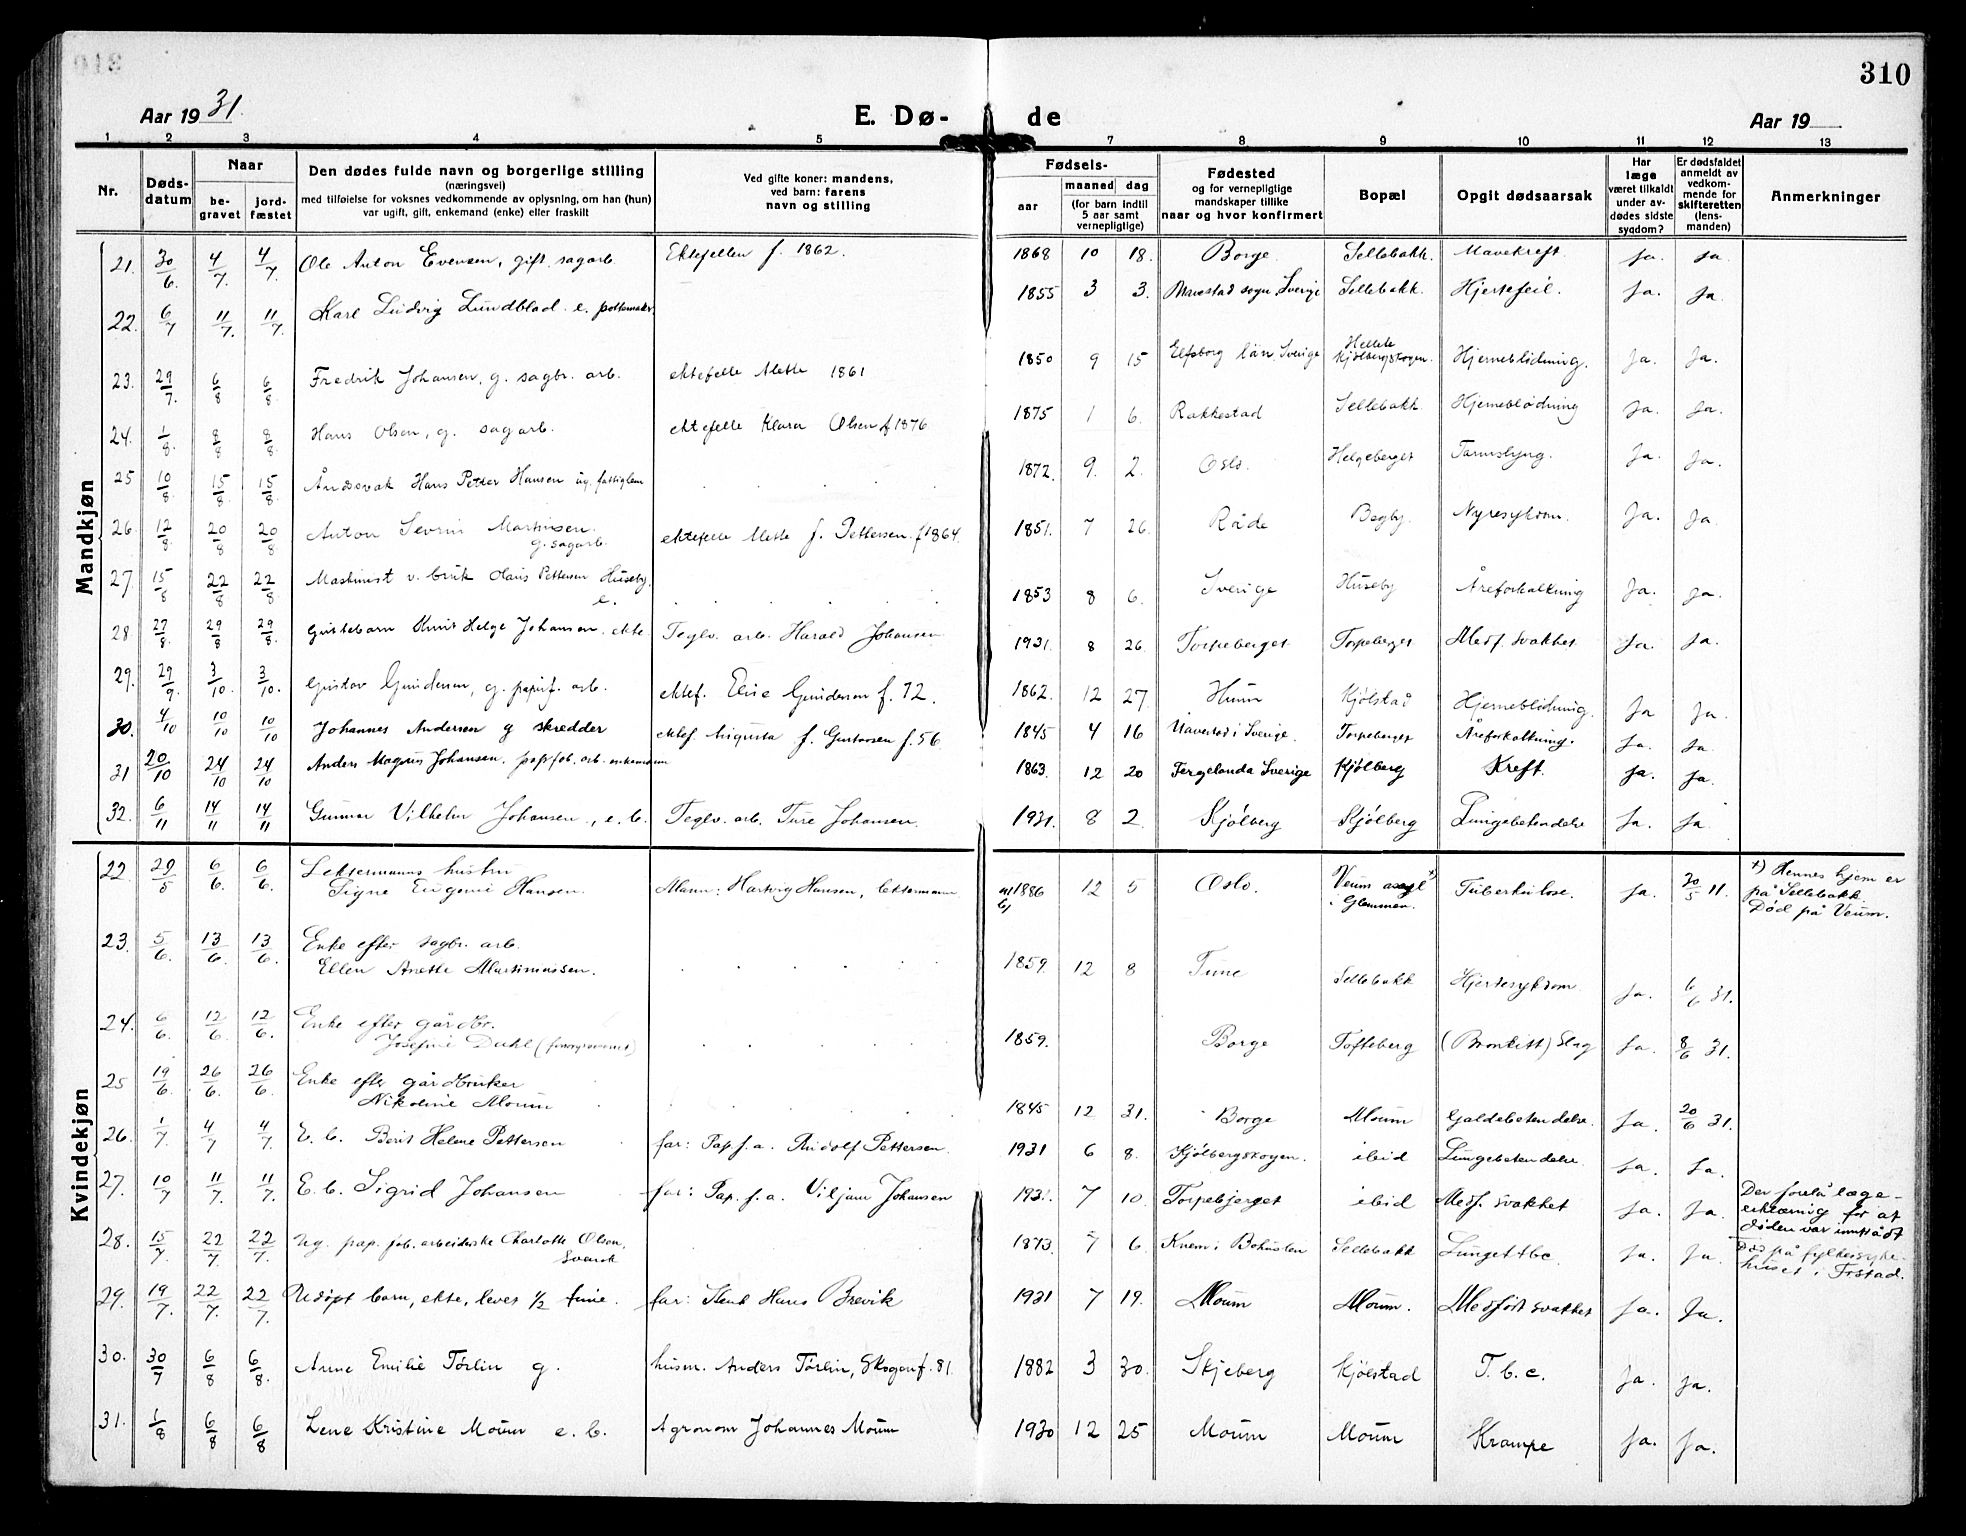 310
Aar 1931.
E. Døde
Aar 19
1 2 3 4 5 7 8 9 10 11 12 13
Nr.
Dødsdatum
Naar
begravet
jordfæstet
Den dødes fulde navn og borgerlige stilling
(næringsvei)
med tilføielse for voksnes vedkommende av oplysning, om han (hun)
var ugift, gift, enkemand (enke) eller fraskilt
Ved gifte koner: mandens,
ved barn: farens
navn og stilling
Fødsels-
aar
maaned dag
(for barn indtil
5 aar samt
vernepligtige)
Fødested
og for vernepligtige
mandskaper tillike
naar og hvor konfirmert
Bopæl
Opgit dødsaarsak
Har
læge
været tilkaldt
under avdødes sidste
sygdom?
Er dødsfaldet
anmeldt av
vedkommende for
skifteretten
(lensmanden)
Anmerkninger
Mandkjøn
21. 30/6. 4/7. 4/7. Ole Anton Evensen, gift, sagarb. Ektefellen f. 1862. 1868 10 18. Borge. Sellebakk. Mavekreft Ja. Ja.
22. 6/7 11/7. 11/7. Karl Ludvig Lundblad e. pottemaker 1855 3 3. sogn Sverige Sellebakk. Hjertefeil. Ja. Ja.
23. 29/7. 6/8 6/8 Fredrik Johansen, g. sagbr. arb. ektefelle Mette 1861 1850 9 15 Elfsborg län, Sverige Kjølbergskogen. Hjerneblødning. Ja. Ja.
24. 1/8. 8/8 8/8 Hans Olsen, g. sagarb. ektefelle Klara Olsen f 1876 1875 1 6. Rakkestad Sellebakk Hjerneblødning Ja. Ja.
25 10/8. 15/8. 15/8. Åndsvak Hans Petter Hansen ug. fattiglem 1872. 9. 2. Oslo. Helgeberget Tarmslyng. Ja. Ja.
26. 12/8. 20/8 20/8 Anton Sevrin Martinsen. g. sagarb. ektefelle Mette f. Pettersen. f 1864. 1851. 7 26. Råde Begby. Nyresykdom. Ja. Ja
27. 15/8 22/8 22/8 Maskinist v. bruk Hans Pettersen Huseby. e. 1853 8 6. Sverige Huseby Åreforkalkning Ja. Ja.
28 27/8. 29/8 29/8. Guttebarn Knut Helge Johansen. ekte. Teglv. arb. Harald Johansen 1931. 8 26. Torpeberget Torpeberget Medf. svakhet Ja. Ja.
29. 29/9. 3/10. 3/10. Gustav Gundersen, g. papirf. arb. ektef. Elise Gundersen f. 72. 1862. 12 27. Hunn Kjølstad Hjerneblødning. Ja Ja.
30. 4/10 10/10 10/10 Johannes Andersen g skredder ektef. Augusta f. Gustavsen f. 56 1845 4 16 Sverige. Torpeberget Åreforkalkning. Ja. Ja
31 20/10 24/10 24/10 Anders Magnus Johansen. papfab. arb. enkemann 1863. 12 20 Fergelanda Sverige Kjølberg Kreft. Ja. Ja.
32. 6/11 14/11 14/11 Gunnar Vilhelm Johansen., e. b. Teglv. arb. Ture Johansen. 1931. 8 2. Kjølberg Kjølberg Lungebetendelse Ja. Ja.
Kvindekjøn
22. 29/5 6/6. 6/6. Lektermanns hustru Signe Eugenie Hansen. Mann: Hartvig Hansen, lektermann 1886 12 5 Oslo. Veum asyl x) i Glemmen. Tuberkulose. Ja. 30/5 11. x) Hennes hjem er
på Sellebakk.
Død på Veum.
23. 5/6. 13/6. 13/6. Enke efter sagbr. arb. Ellen Anette Martinussen. 1859. 12 8 Tune Sellebakk Hjertesykdom. Ja. 6/6 31.
24. 6/6. 12/6. 12/6. Enke efter gårdbr. Josefine Dahl 1859. Borge Tofteberg (Bronkitt) Slag Ja. 8/6 31.
25 19/6. 26/6. 26/6. Enke efter gårdbruker Nikoline Moum 1845 12 31. Borge Moum Galdebetendelse. Ja. 20/6 31.
26. 1/7. 4/7 4/7. E. b. Berit Helene Pettersen far: Pap. f. a. Rudolf Pettersen. 1931 6 8. Kjølbergskogen. ibid Lungebetendelse. Ja. Ja.
27. 10/7 11/7. 11/7. E. b. Sigrid Johansen far: Pap. f. a. Viljam Johansen 1931. 7 10. Torpebjerget ibid Medf. svakhet Ja. Ja. Der forelå lægeerklæring for at
døden var inntrådt
28. 15/7 22/7. 22/7. Ug. pap. fab. arbeiderske Charlotte Olsen, Svensk 1873. 7 6. Knem i Bohuslen Sellebakk Lunget tbc. Ja. Ja. Død på fylkessykehuset i Frstad.
29. 19/7. 22/7. 22/7. Udøpt barn, ekte, levet 1/2 time. far: Hans Brevik 1931 7 19. Moum Moum. Medfødt svakhet Ja. Ja.
30. 30/7 6/8 6/8. Anne Emilie Törlin g. husm. Anders Törlin, Skogen f. 81. 1882 3 30. Skjeberg Kjølstad T. b. c. Ja. Ja.
31. 1/8 6/8 6/8 Lene Kristine Moum e. b. Agronom Johannes Moum 1930 12 25 Moum Moum Krampe Ja. Ja.